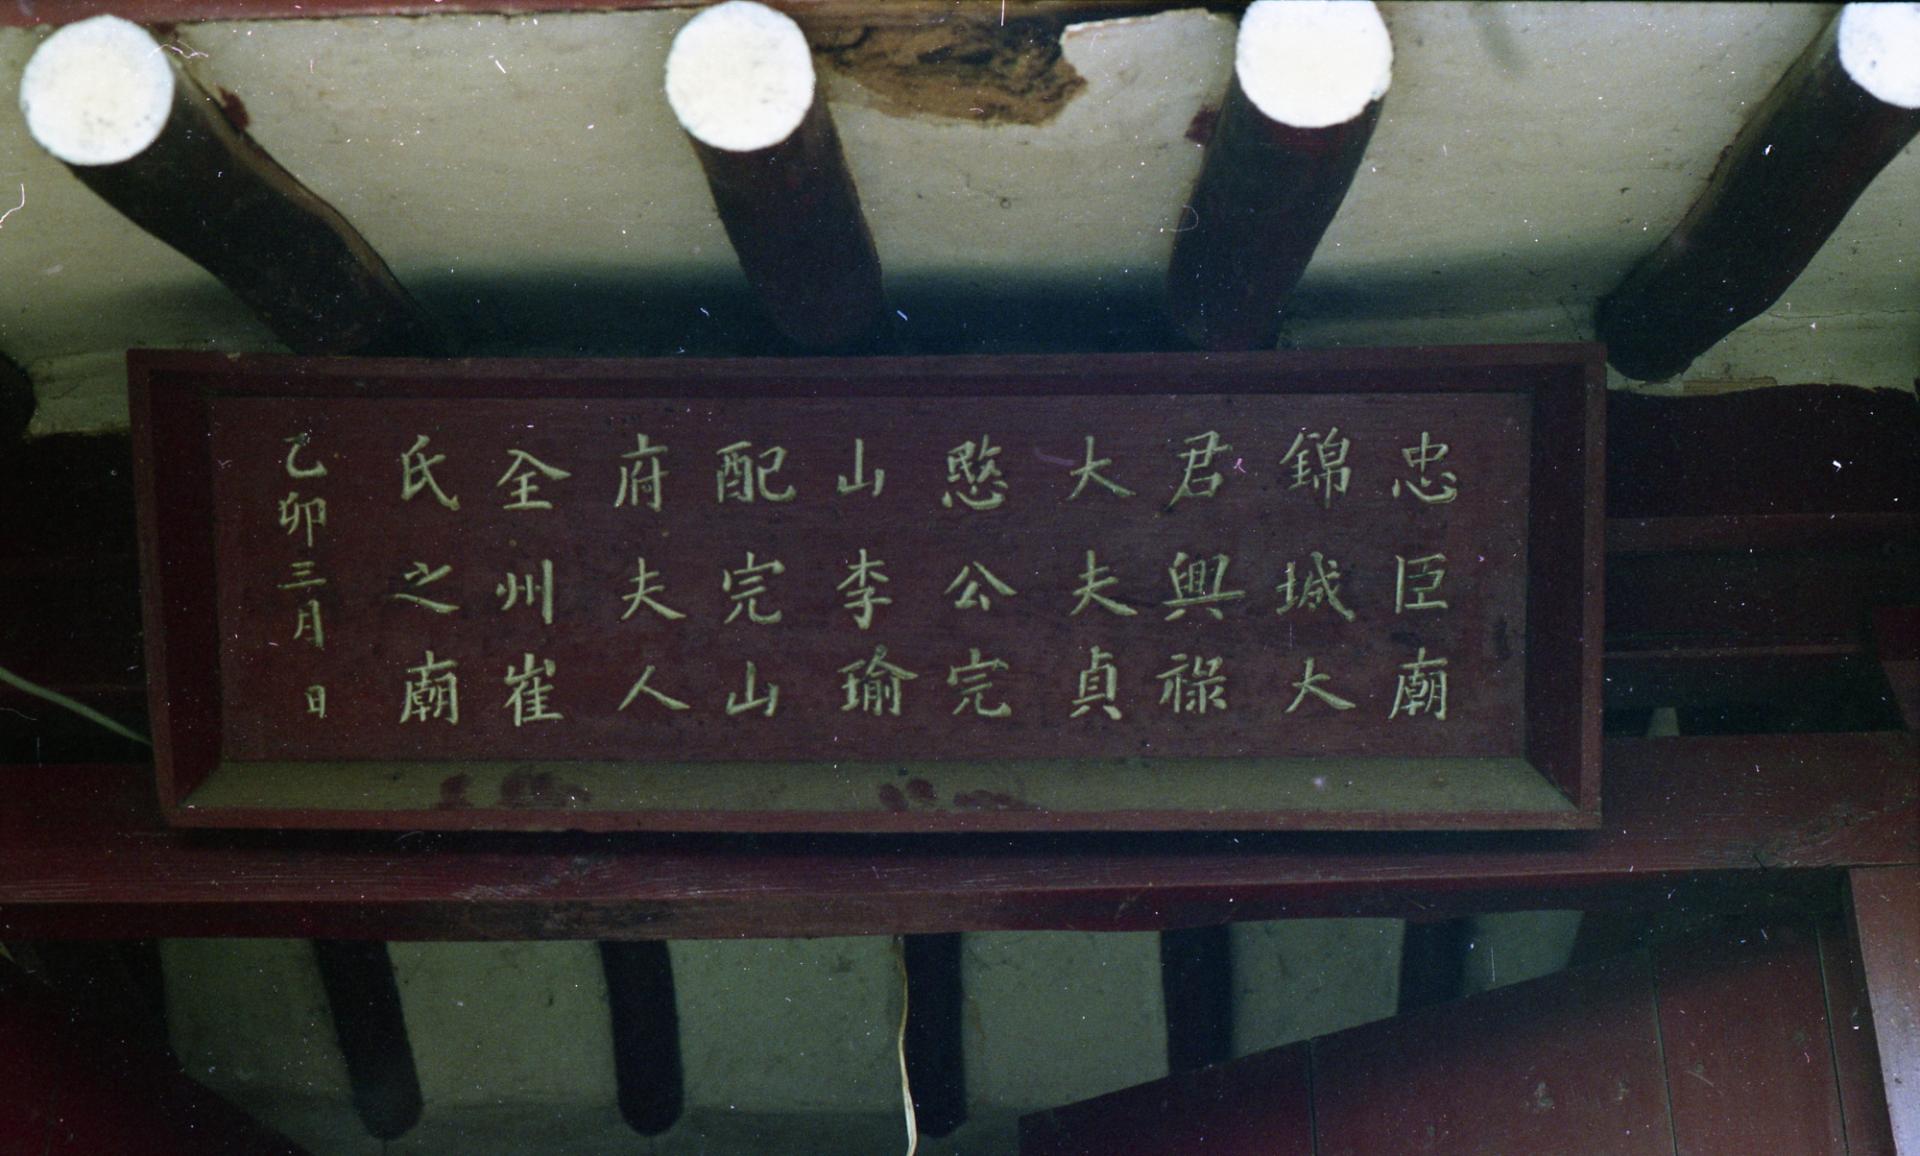 忠臣廟
錦城大
君興祿
大夫貞
愍公完
山李瑜
配完山
府夫人
全州崔
氏之廟
乙卯三月 日